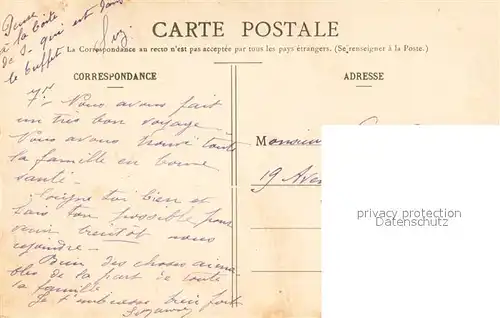 Pense
à la boîte
de J. qui est dans
le buffet
CARTE POSTALE
La Correspondance au recto n'est pas acceptée par tous les pays étrangers. (Se renseigner à la Poste.)
CORRESPONDANCE
ADRESSE
Nous avons fait
un très bon voyage
Nous avons trouvé toute
la famille en bonne
santé.
Soigne toi bien et
fais ton possible pour
venir bientôt nous
rejoindre.
Bien des choses aima-
bles de la part de toute
la famille
Je t'embrasse bien fort
Monsieur
19 Aven
privacy protection
Datenschutz